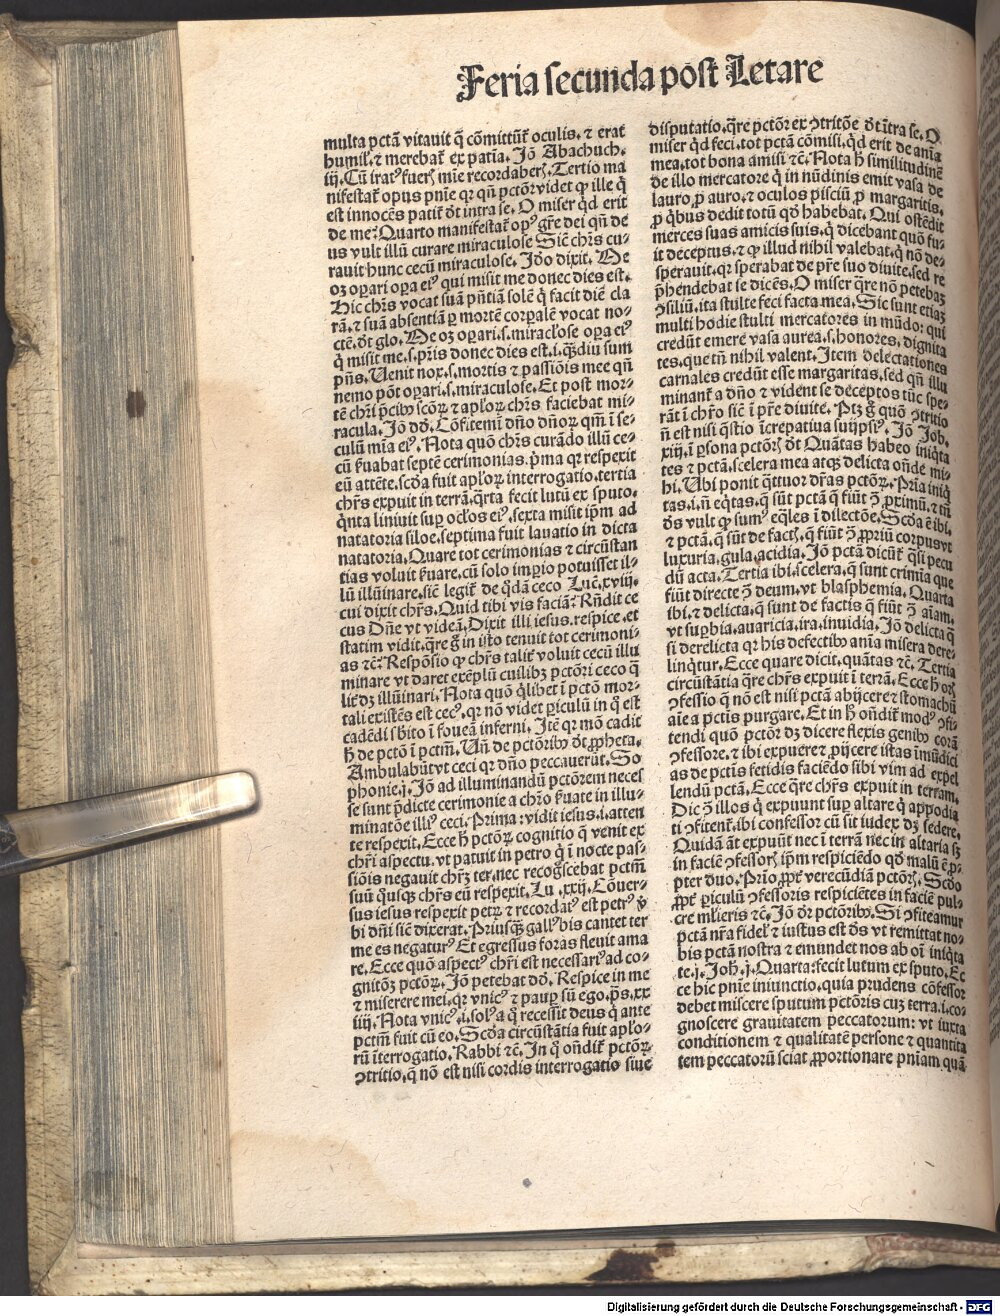 Feria secunda post Letare
multa pctā vitauit q̄ cōmittūt᷑ oculis. ⁊ erat
humil᷑. ⁊ merebat᷑ ex patia. Jō Abachuch.
iij. Cū irat⁹ fuerꝭ mīe recordaberꝭ. Tertio ma
nifestat᷑ opus pnīe qr qn̄ pctōr videt ꝙ ille q̇
est innocēs patit᷑ d̄t intra se. O miser qd erit
de me? Quarto manifestat᷑ op⁹ gr̄e dei qn̄ de
us vult illū curare miraculose Sic̄ chr̄s cu-
rauit hunc cecū miraculose. Jdo dixit. Me
oꝫ oꝑari oꝑa ei⁹ qui misit me donec dies est.
Hic chr̄s vocat suā pn̄tiā solē q̇ facit diē cla
rā. ⁊ suā absentiā ꝑ mortē corꝑalē vocat no-
ctē. d̄t glo. Me oꝫ oꝑari. s. miracl̓ose oꝑa ei⁹
q̇ misit me. s. pr̄is donec dies est. i. q̄ꝫdiu sum
pn̄s. Uenit nox. s. mortis ⁊ passiōis mee qn̄
nemo pōt oꝑari. s. miraculose. Et post mor-
tē chr̄i p̄cib⁹ scōꝝ ⁊ apl̓oꝝ chr̄s faciebat mi-
racula. Jō dō. Cōfitemī dn̄o dn̄oꝝ qm̄ ī se-
culū mīa ei⁹. Nota quō chr̄s curādo illū ce-
cū ẜuabat septē cerimonias. p̄ma qr respexit
eū attēte. scd̓a fuit apl̓oꝝ interrogatio. tertia
chr̄s expuit in terrā. q̄rta fecit lutū ex sputo.
q̇nta liniuit suꝑ ocl̓os ei⁹. sexta misit ip̄m ad
natatoria siloe. septima fuit lauatio in dicta
natatoria. Quare tot cerimonias ⁊ circūstan
tias voluit ẜuare. cū solo imꝑio potuisset il-
lū illūinare. sic̄ legit᷑ de q̇dā ceco Luc̄. xviij.
cui dixit chr̄s. Quid tibi vis faciā? Rn̄dit ce
cus Dn̄e vt videā. Dixit illi iesus. respice. et
statim vidit. q̄re g̊ in isto tenuit tot cerimoni-
as ⁊c̄? Respōsio ꝙ chr̄s talit᷑ voluit cecū illu
minare vt daret exēplū cuilibꝫ pctōri ceco q̄
lit᷑ dꝫ illūinari. Nota quō q̇libet ī pctō mor-
tali existēs est cec⁹. qr nō videt ꝑiculū in q̊ est
cadēdi sb̓ito ī foueā inferni. Jtē qr mō cadit
ħ de pctō ī pctm̄. Un̄ de pctōrib⁹ d̄t ꝓpheta.
Ambulabūt vt ceci qr dn̄o peccauerūt. So
phonie. j. Jō ad illuminandū pctōrem neces
se sunt p̄dicte cerimonie a chr̄o ẜuate in illu-
minatōe illi⁹ ceci. Prima: vidit iesus. i. atten
te respexit. Ecce ħ pctōꝝ cognitio q̄ venit ex
chr̄i aspectu. vt patuit in petro q̇ ī nocte pas-
siōis negauit chr̄ꝫ ter. nec recog̊scebat pctm̄
suū q̊usqꝫ chr̄s eū respexit. Lu. xxij. Cōuer-
sus iesus respexit petꝝ ⁊ recordat⁹ est petr⁹ ṽ
bi dn̄i sic̄ dixerat. Priusq̄ꝫ gall⁹ bis cantet ter
me es negatur⁹ Et egressus foras fleuit ama
re. Ecce quō aspect⁹ chr̄i est necessari⁹ ad co-
gnitōꝫ pctōꝝ. Jō petebat dō. Respice in me
⁊ miserere mei. qr vnic⁹ ⁊ paup sū ego. ps. xx
iiij. Nota vnic⁹. i. sol⁹ a q̊ recessit deus q̇ ante
pctm̄ fuit cū eo. Scd̓a circūstātia fuit apl̓o-
rū īterrogatio. Rabbi ⁊c̄. In q̊ on̄dit᷑ pctōꝝ
ꝯtritio. q̄ nō est nisi cordis interrogatio siue
disputatio. q̄re pctōꝛ ex ꝯtritōe d̄t ītra se. O
miser qd feci. tot pctā cōmisi. qd erit de aīa
mea. tot bona amisi ⁊c̄. Nota ħ similitudinē
de illo mercatore q̇ in nūdinis emit vasa de
lauro. ꝓ auro. ⁊ oculos pisciū ꝓ margaritis.
ꝓ q̇bus dedit totū qd̓ habebat. Qui ostēdit
merces suas amicis suis. q̇ dicebant quō fu-
it deceptus. ⁊ ꝙ illud nihil valebat. q̇ nō de-
sperauit. qr sperabat de pr̄e suo diuite. sed re
p̄hendebat se dicēs. O miser q̄re nō petebaꝫ
ꝯsiliū. ita stulte feci facta mea. Sic sunt etiaꝫ
multi hodie stulti mercatores in mūdo: qui
credūt emere vasa aurea. s. honores. dignita
tes. que tn̄ nihil valent. Jtem delectationes
carnales credūt esse margaritas. sed qn̄ illu
minant᷑ a dn̄o ⁊ vident se deceptos tūc spe-
rāt ī chr̄o sic̄ ī pr̄e diuite. Ptꝫ g̊ quō ꝯtritio
n̄ est nisi q̄stio īcrepatiua suijpsi⁹. Jō Job.
xiij. ī ꝑsona pctōꝝ d̄t Quātas habeo iniq̇ta
tes ⁊ pctā. scelera mea atqꝫ delicta on̄de mi-
hi. Ubi ponit q̇ttuor dr̄as pctōꝝ. Pr̄ia iniq̇
tas. i. n̄ eq̇tas. q̄ sūt pctā q̄ fiūt ꝯ̄ ꝓximū. ⁊ tn̄
d̓s vult ꝙ sum⁹ eq̄les ī dilectōe. Scd̓a ē ibi.
⁊ pctā. q̄ sūt de factꝭ. q̄ fiūt ꝯ̄ ꝓpriū corpus vt
luxuria. gula. acidia. Jō pctā dicūt᷑ q̄si pecu
dū acta. Tertia ibi. scelera. q̄ sunt crimīa que
fiūt directe ꝯ̄ deum. vt blasphemia. Quarta
ibi. ⁊ delicta. q̄ sunt de factis q̄ fiūt ꝯ̄ aīam.
vt suꝑbia. auaricia. ira. inuidia. Jō delicta q̄
si derelicta qr his defectib⁹ anīa misera dere-
linq̇tur. Ecce quare dicit. quātas ⁊c̄. Tertia
circūstātia q̄re chr̄s expuit ī terrā. Ecce ħ oꝝ
ꝯfessio q̄ nō est nisi pctā abijcere ⁊ stomachū
aīe a pctis purgare. Et in ħ on̄dit᷑ mod⁹ ꝯfi-
tendi quō pctōr dꝫ dicere flexis genib⁹ corā
ꝯfessore. ⁊ ibi expuere ⁊ ꝓijcere istas īmūdici
as de pctīs fetidis faciēdo sibi vim ad expel
lendū pctā. Ecce q̄re chr̄s expuit in terram.
Dic ꝯ̄ illos q̇ expuunt suꝑ altare q̇ appodia
ti ꝯfitent᷑. ibi confessor cū sit iudex dꝫ sedere.
Quidā āt expuūt nec ī terrā nec in altaria sꝫ
in faciē ꝯfessorꝭ ip̄m respiciēdo qd̓ malū ē ꝓ-
pter duo. Pr̄io. ꝓpt᷑ verecūdiā pctōrꝭ. Scd̓o
ꝓpt᷑ ꝑiculū ꝯfessoris respiciētes in faciē pul-
cre ml̓ieris ⁊c̄. Jō d̄r pctōrib⁹. Si ꝯfiteamur
pctā nr̄a fidel᷑ ⁊ iustus est d̓s vt remittat no-
bis pctā nostra ⁊ emundet nos ab oī iniq̇ta
te. j. Joh̄. j. Quarta: fecit lutum ex sputo. Ec
ce hic pnīe iniunctio. quia prudens cōfessor
debet miscere sputum pctōris cuꝫ terra. i. co-
gnoscere grauitatem peccatorum: vt iuxta
conditionem ⁊ qualitatē persone ⁊ quantita
tem peccatorū sciat ꝓportionare pnīam quā
Digitalisierung gefördert durch die Deutsche Forschungsgemeinschaft - DFG